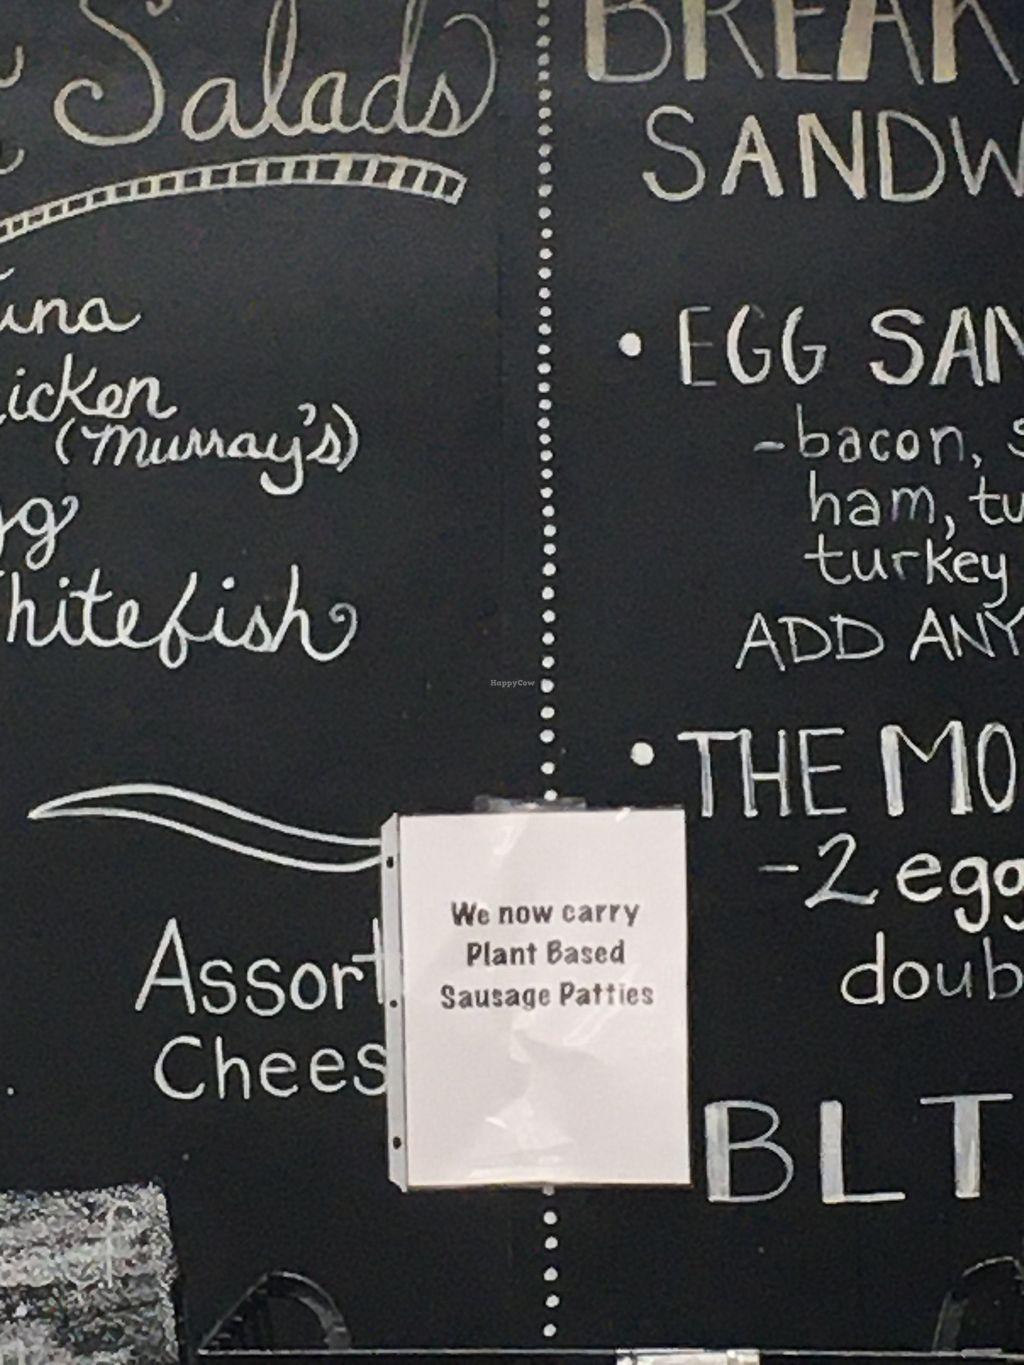 Salads
(Murray's)
Assort
Chees
We now carry
Plant Based
Sausage Patties
BREAK
SANDW
• EGG SAN
-bacon, s
ham, tu
turkey
ADD ANY
• THE MO
-2 egg
doub
BLT
HappyCow